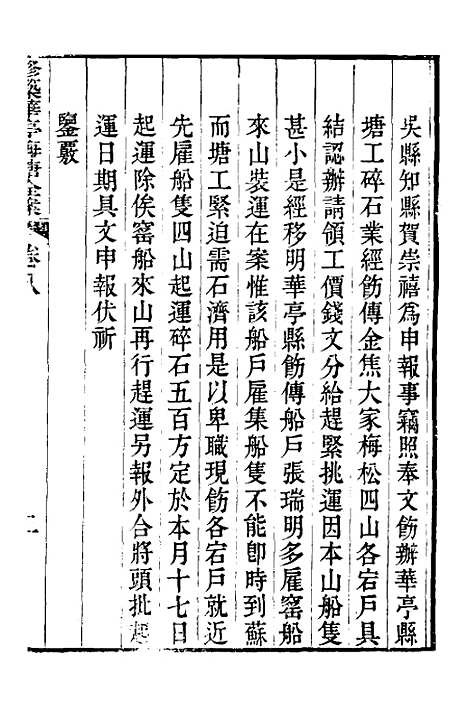 吳縣知縣賀崇禧爲申報事竊照奉文飭辦華亭縣
塘工碎石業經飭傳金焦大家梅松四山各宕戶具
結認辦請領工價錢文分給趕緊挑運因本山船隻
甚小是經移明華亭縣飭傳船戶張瑞明多雇窑船
來山裝運在案惟該船戶雇集船隻不能卽時到蘇
而塘工緊迫需石濟用是以卑職現飭各宕戶就近
先雇船隻四山起運碎石五百方定於本月十七日
起運除俟窑船來山再行趕運另報外合將頭批起
運日期具文申報伏祈
鑒覈
修築華亭海塘全案 卷八
二